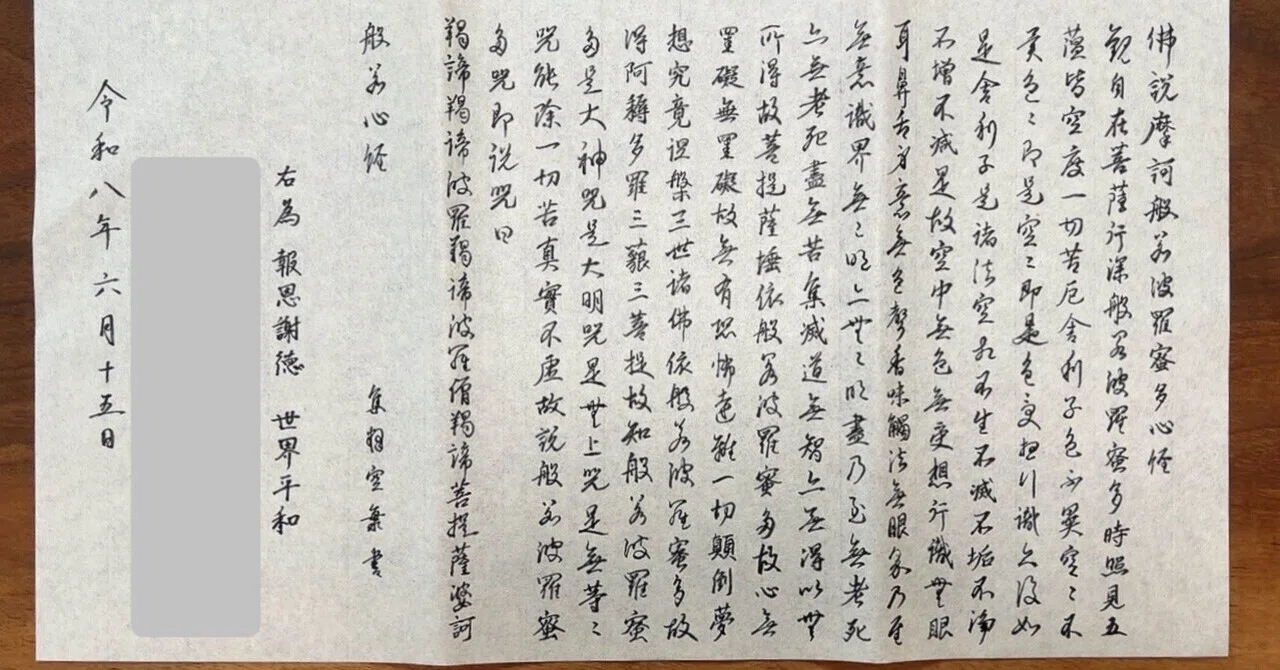 佛説摩訶般若波羅蜜多心経
観自在菩薩行深般若波羅蜜多時照見五
蘊皆空度一切苦厄舎利子色不異空〻不
異色〻即是空〻即是色受想行識亦復如
是舎利子是諸法空相不生不滅不垢不浄
不増不減是故空中無色無受想行識無眼
耳鼻舌身意無色聲香味觸法無眼界乃至
無意識界無〻明亦無〻明盡乃至無老死
亦無老死盡無苦集滅道無智亦無得以無
所得故菩提薩埵依般若波羅蜜多故心無
罣礙無罣礙故無有恐怖遠離一切顛倒夢
想究竟涅槃三世諸佛依般若波羅蜜多故
得阿耨多羅三藐三菩提故知般若波羅蜜
多是大神咒是大明咒是無上咒是無等〻
咒能除一切苦真實不虚故説般若波羅蜜
多咒即説咒曰
羯諦羯諦波羅羯諦波羅僧羯諦菩提薩婆訶
般若心経
集 空 書
右為 報恩謝徳 世界平和
令和八年六月十五日